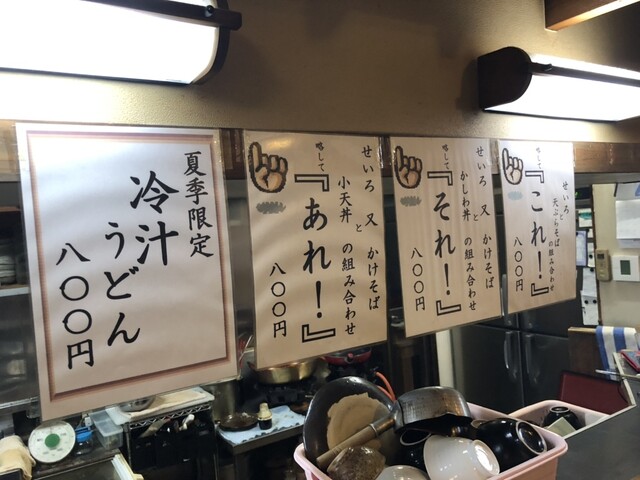 せいろ と
天ぷらそば の組み合わせ
略して
『これ!』
八〇〇円
せいろ 又 かけそば
と
かしわ丼 の組み合わせ
略して
『それ!』
八〇〇円
せいろ 又 かけそば
と
小天丼 の組み合わせ
略して
『あれ!』
八〇〇円
夏季限定
冷汁
うどん
八〇〇円